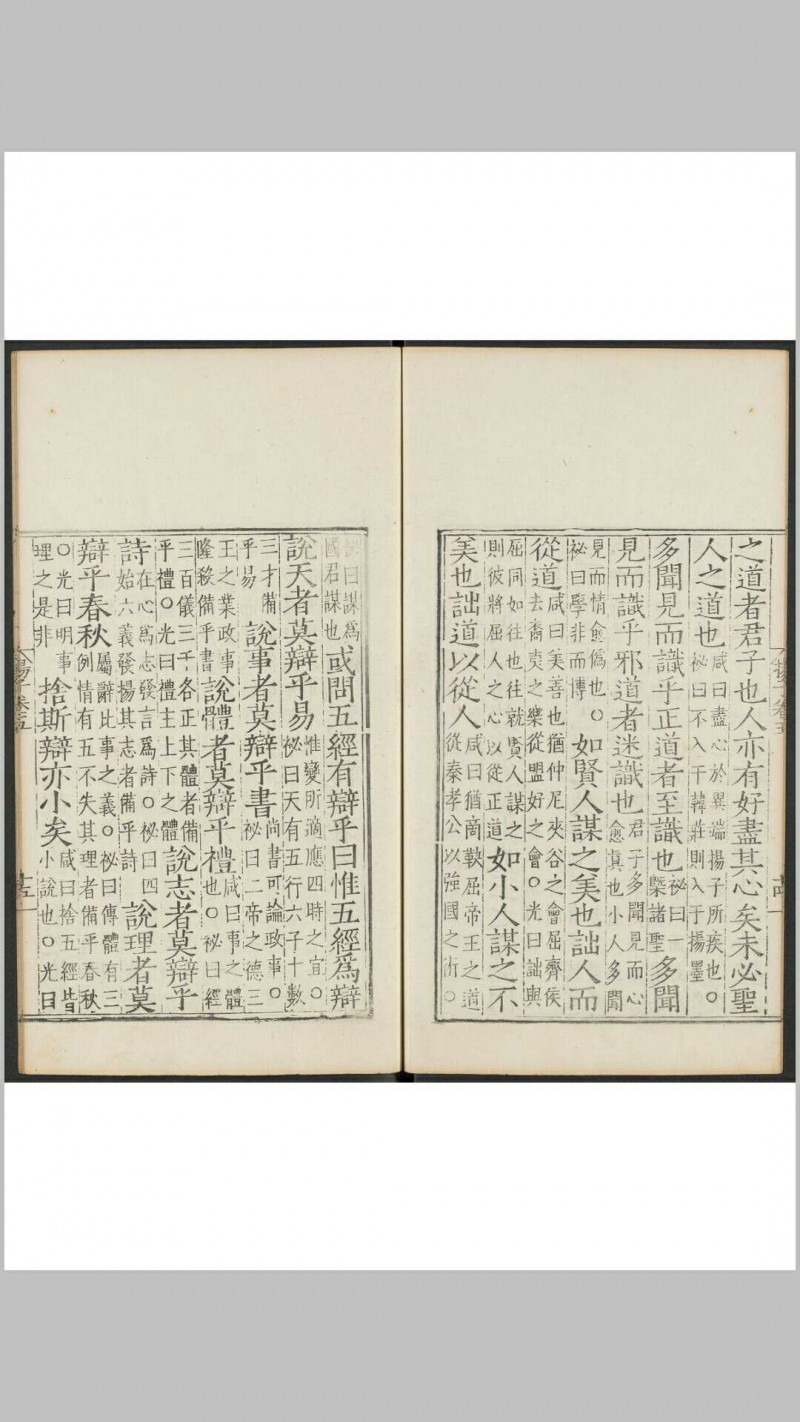 之道者君子也人亦有好盡其心矣未必聖
人之道也
咸曰盡心於異端揚子所疾也○
祕曰不入于韓莊則入于揚墨
多聞見而識乎正道者至識也
祕曰一
槩諸聖
多聞
見而識乎邪道者迷識也
君子多聞見而心
愈真也小人多聞
見而情愈僞也○
祕曰學非而博
如賢人謀之美也詘人而
從道
咸曰美善也猶仲尼夾谷之會屈齊侯
去裔夷之樂從盟好之會○光曰詘與
屈同如往也往就賢人謀之
則彼將屈人之心以從正道
如小人謀之不
美也詘道以從人
咸曰猶商鞅屈帝王之道
從秦孝公以強國之術○
曰謀爲
國君謀也
或問五經有辯乎曰惟五經爲辯
說天者莫辯乎易
惟變所適應四時之宜○
祕曰天有五行六子十數
三才備
乎易
說事者莫辯乎書
尚書可論政事○
祕曰二帝之德三
王之業政事
隆殺備乎書
說體者莫辯乎禮
咸曰事之體
也○祕曰經
三百儀三千各正其體者備
乎禮○光曰禮主上下之體
說志者莫辯乎
詩
在心爲志發言爲詩○祕曰四
始六義發揚其志者備乎詩
說理者莫
辯乎春秋
屬辭比事之義○祕曰傳體有三
例情有五不失其理者備乎春秋
○光曰明事
理之是非
捨斯辯亦小矣
咸曰捨五經皆
小說也○光曰